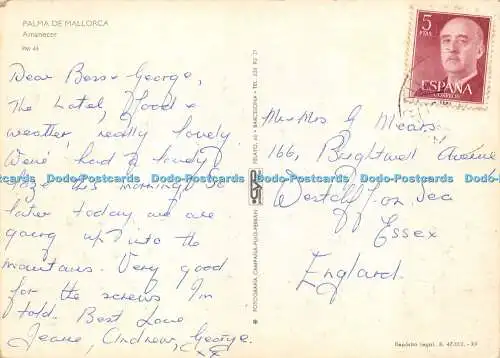 PALMA DE MALLORCA
Amanecer
PM 44
Dear Bess & George,
The Hotel, food &
weather really lovely.
We've had a lovely
laze this morning & so
later today we are
going up into the
mountains. Very good
for the screws I'm
told. Best Love
Jeane, Andrew, George.
xx
FOTOGRAFIA CAMPAÑA-PUIG-FERRAN
PELAYO, 60 • BARCELONA • TEL. 
5
PTAS
ESPAÑA
CORREOS
Mr & Mrs G Mears
166, Brightwell Avenue
Westcliff on Sea
Essex
England.
Depósito legal, B. 47.
Dodo-Postcards Dodo-Postcards Dodo-Postcards Dodo-Postcards Dodo-Postcards